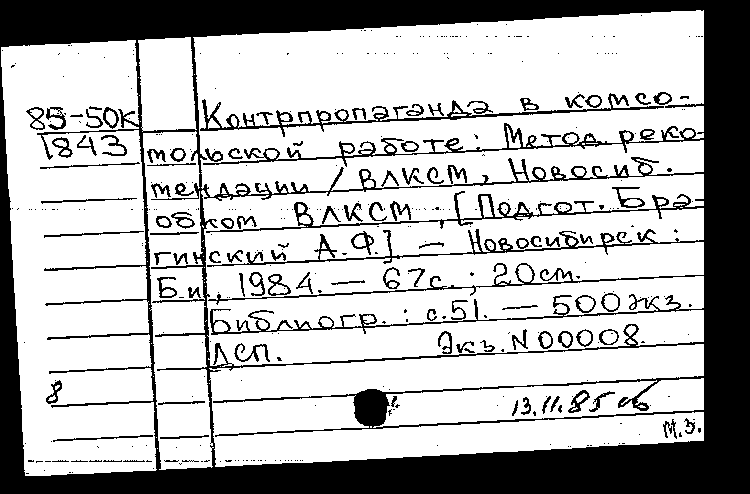 85-50к Контрпропаганда в комсо-
1843 мольской работе: Метод. реко-
мендации / ВЛКСМ, Новосиб.
обком ВЛКСМ; [Подгот. Бра-
гинский А.Ф.] — Новосибирск:
Б.и., 1984. — 67с.; 20см.
Библиогр.: с.51. — 500экз.
ДСП. Экз. N 00008.
8
13.11.85
М.З.